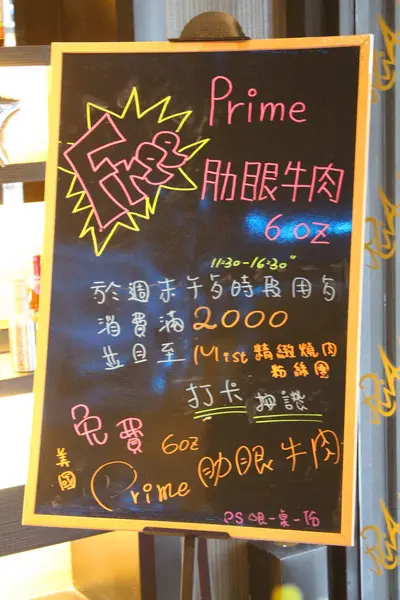 Free
Prime
肋眼牛肉
6oz
11:30-16:30"
於週末午安時段用餐
消費滿2000
並且至Mist精緻燒肉
粉絲團
打卡 按讚
免費 6oz
美國 Prime 肋眼牛肉